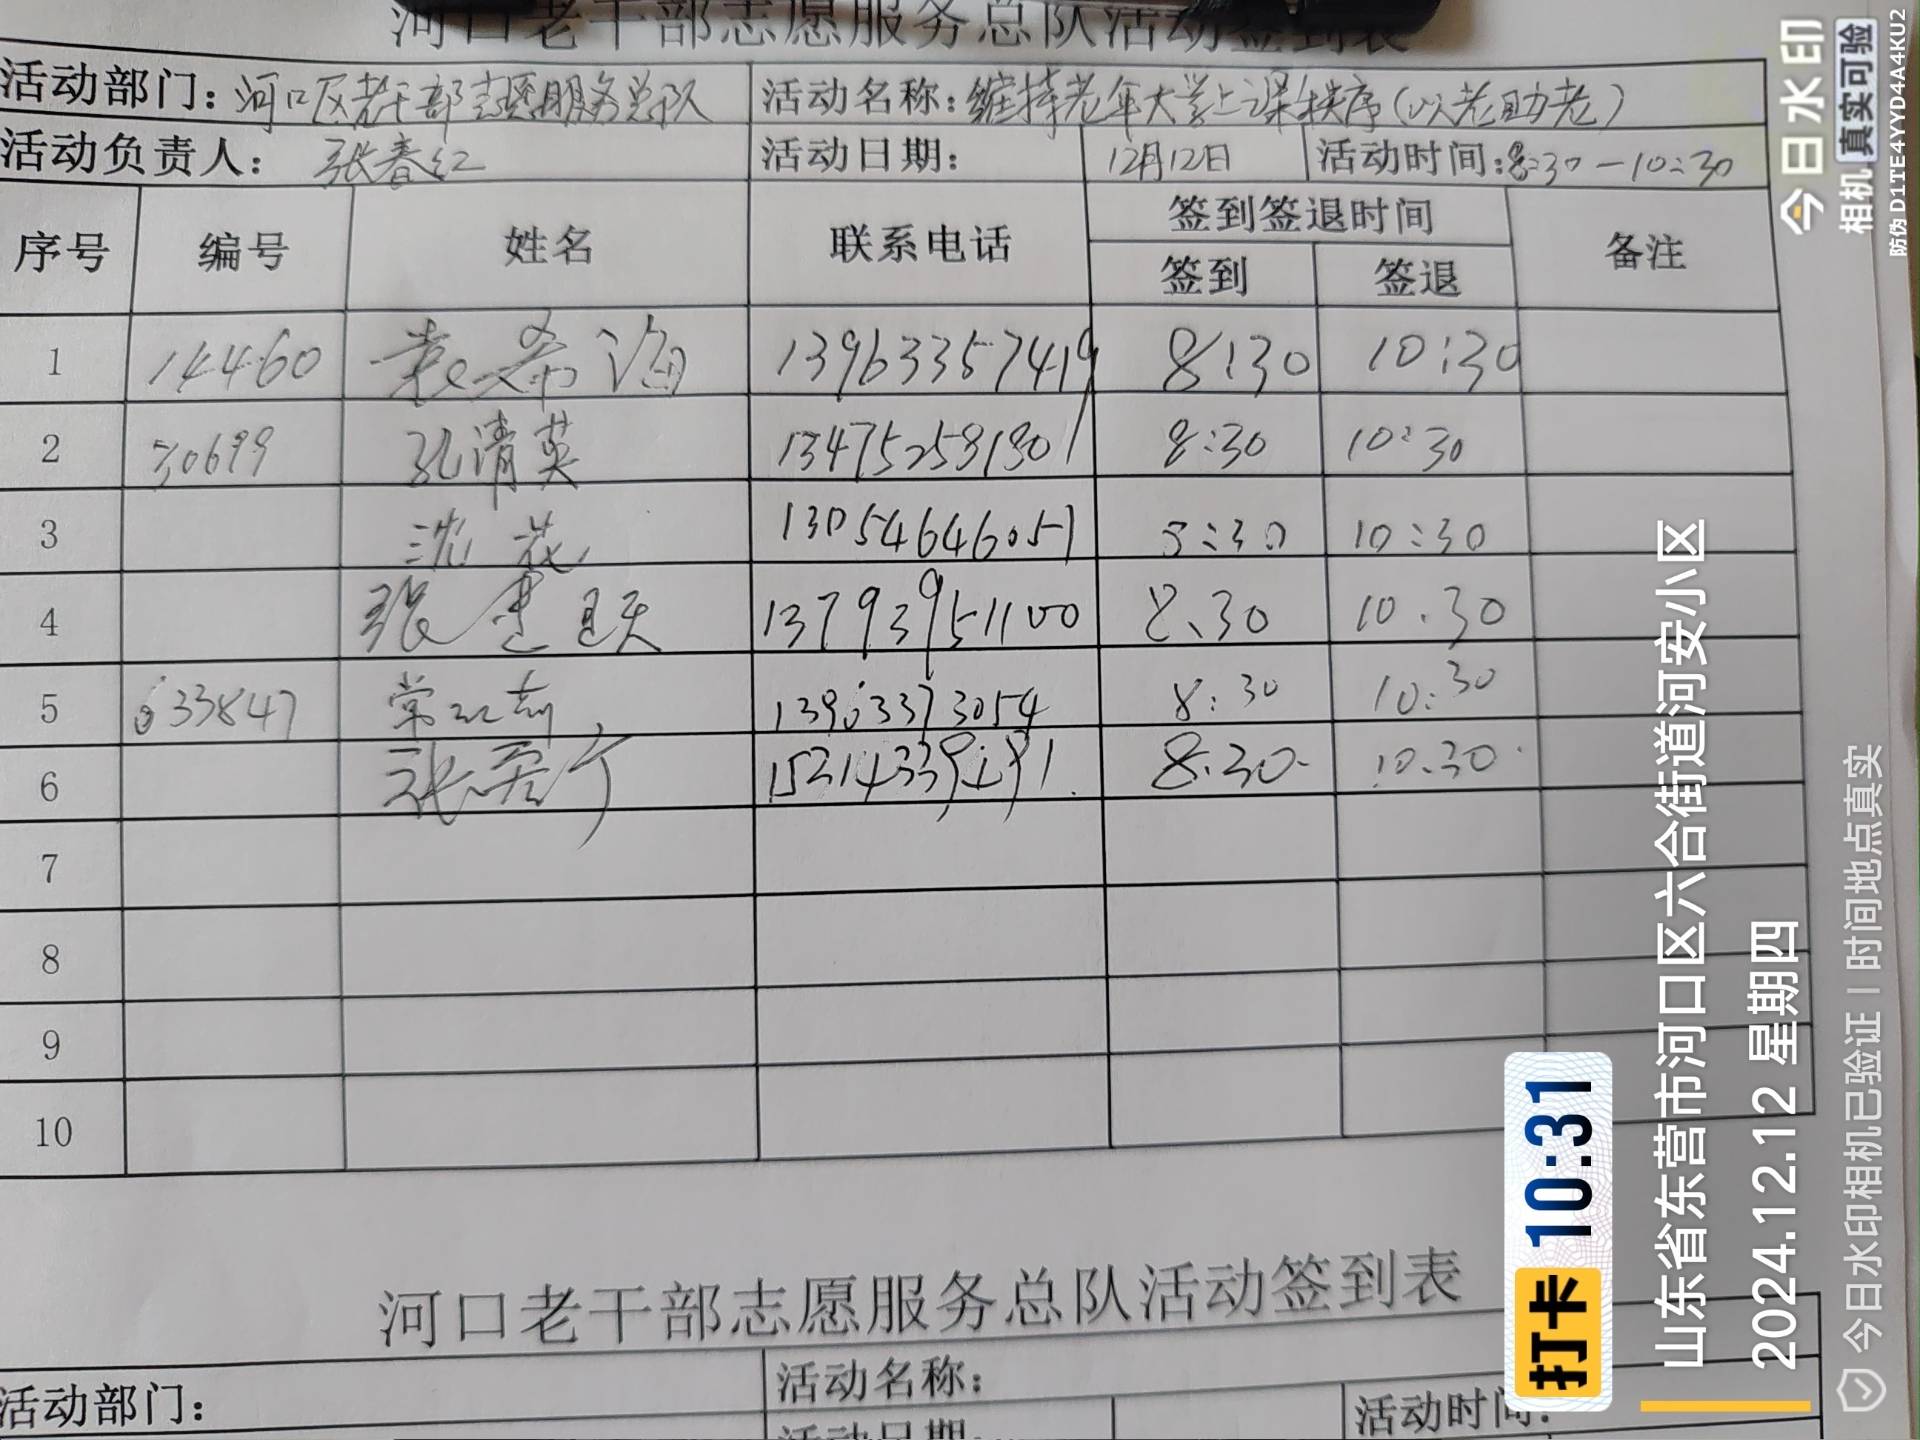 河口老干部志愿服务总队活动签到表
活动部门：河口区老干部志愿服务总队 活动名称：维持老年大学上课秩序（以老助老）
活动负责人：张春红 活动日期： 12月12日 活动时间：8:30—10:30
序号 编号 姓名 联系电话 签到签退时间 备注
签到 签退
1 14460 袁希海 13963357419 8:30 10:30
2 30699 孔清英 13475258130 8:30 10:30
3 沈花 13054646051 8:30 10:30
4 张 13793951100 8.30 10.30
5 633847 常 13963373054 8:30 10:30
6 张 8.30 10.30
7
8
9
10
河口老干部志愿服务总队活动签到表
活动部门： 活动名称：
活动日期： 活动时间：
打卡 10:31
山东省东营市河口区六合街道河安小区
2024.12.12 星期四
今日水印相机已验证 | 时间地点真实
今日水印
相机 真实可验
防伪 D1TE4YYD4A4KU2